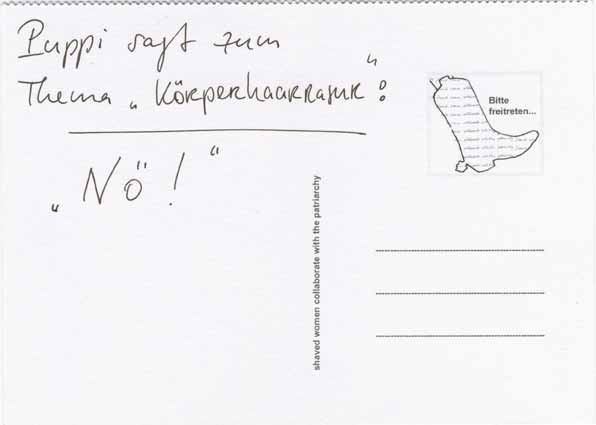 Puppi sagt zum
Thema „Körperhaarrasur“:
„Nö!“
Bitte
freitreten...
shaved women collaborate with the patriarchy